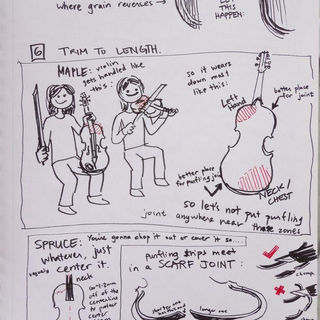 where grain reverses →
THIS
HAPPEN:
6 TRIM TO LENGTH.
MAPLE: violin
gets handled like
this:
so it wears
down most
like this:
Left
hand
better place
for joint
better place
for purfling joint
NECK/
CHEST
so let's not put purfling
joint anywhere near these zones.
SPRUCE: You're gonna chop it out or cover it so....
whatever, just
center it.
neck
off of the
centerline
to protect
center
purfling strips meet
in a SCARF JOINT:
shorter one
longer one